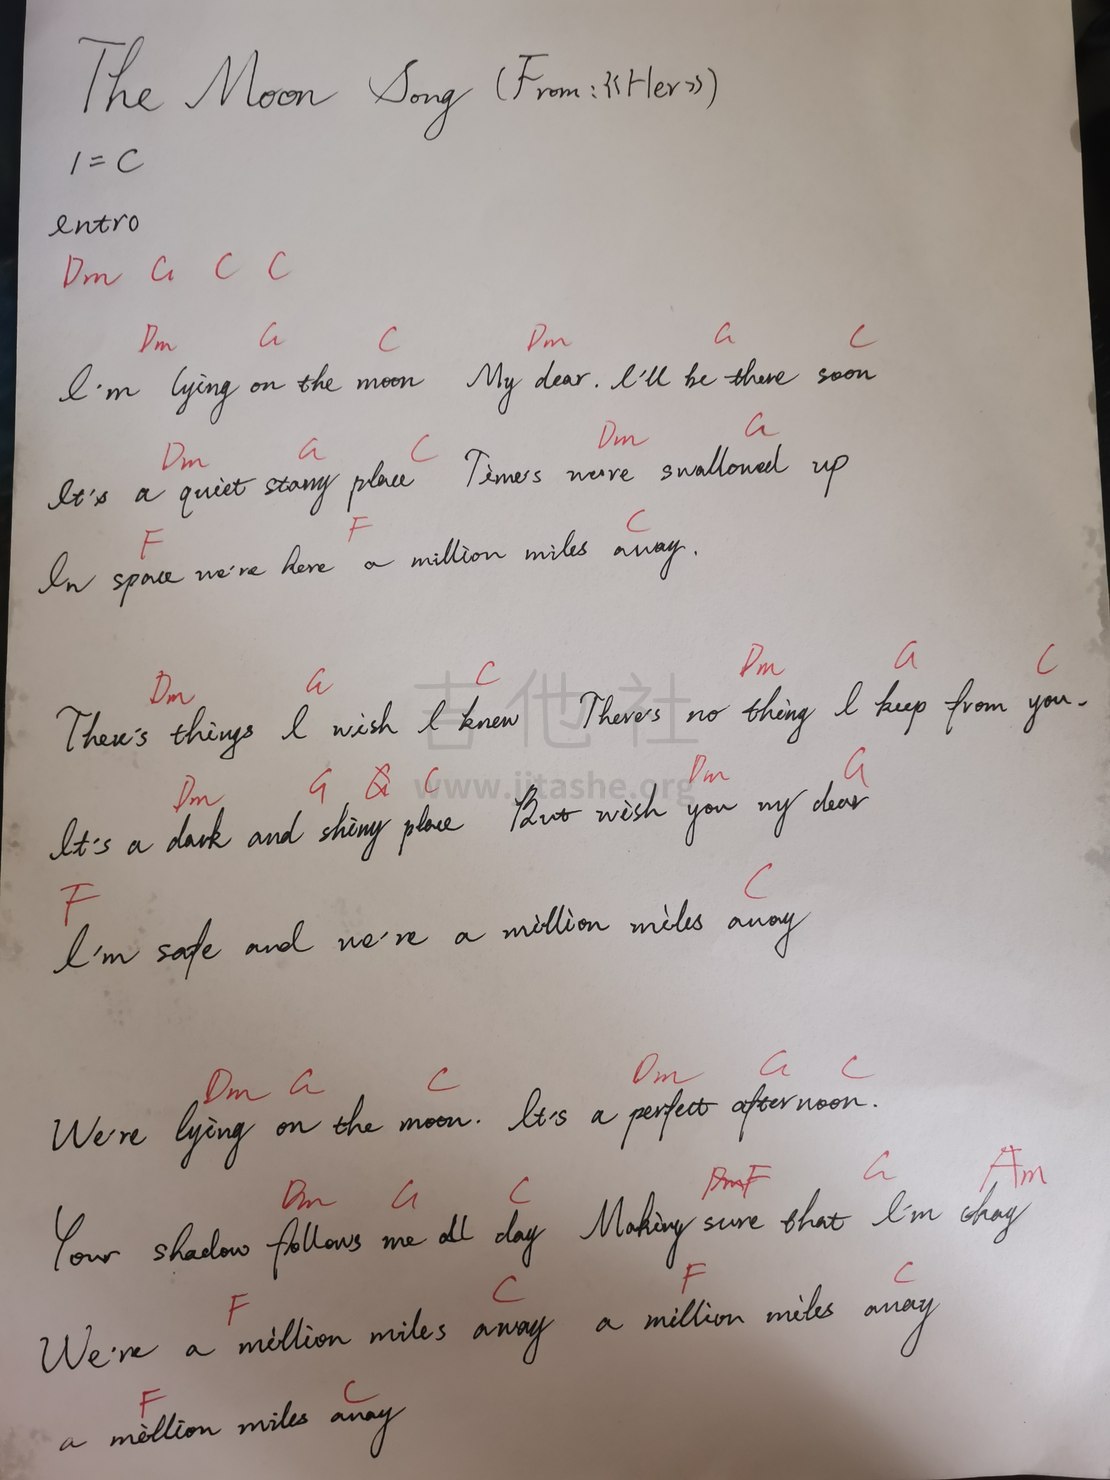 The Moon Song (From:《Her》)
1=C
entro
Dm G C C
Dm G C Dm G C
I'm lying on the moon My dear. I'll be there soon
Dm G C Dm G
It's a quiet starry place Time's we're swallowed up
F F C
In space we're here a million miles away.
Dm G C Dm G C
There's things I wish I knew There's no thing I keep from you.
Dm G C Dm G
It's a dark and shiny place But wish you my dear
F C
I'm safe and we're a million miles away
Dm G C Dm G C
We're lying on the moon. It's a perfect afternoon.
Dm G C F G Am
Your shadow follows me all day Making sure that I'm okay
F C F C
We're a million miles away a million miles away
F C
a million miles away
吉他社
www.jitashe.org